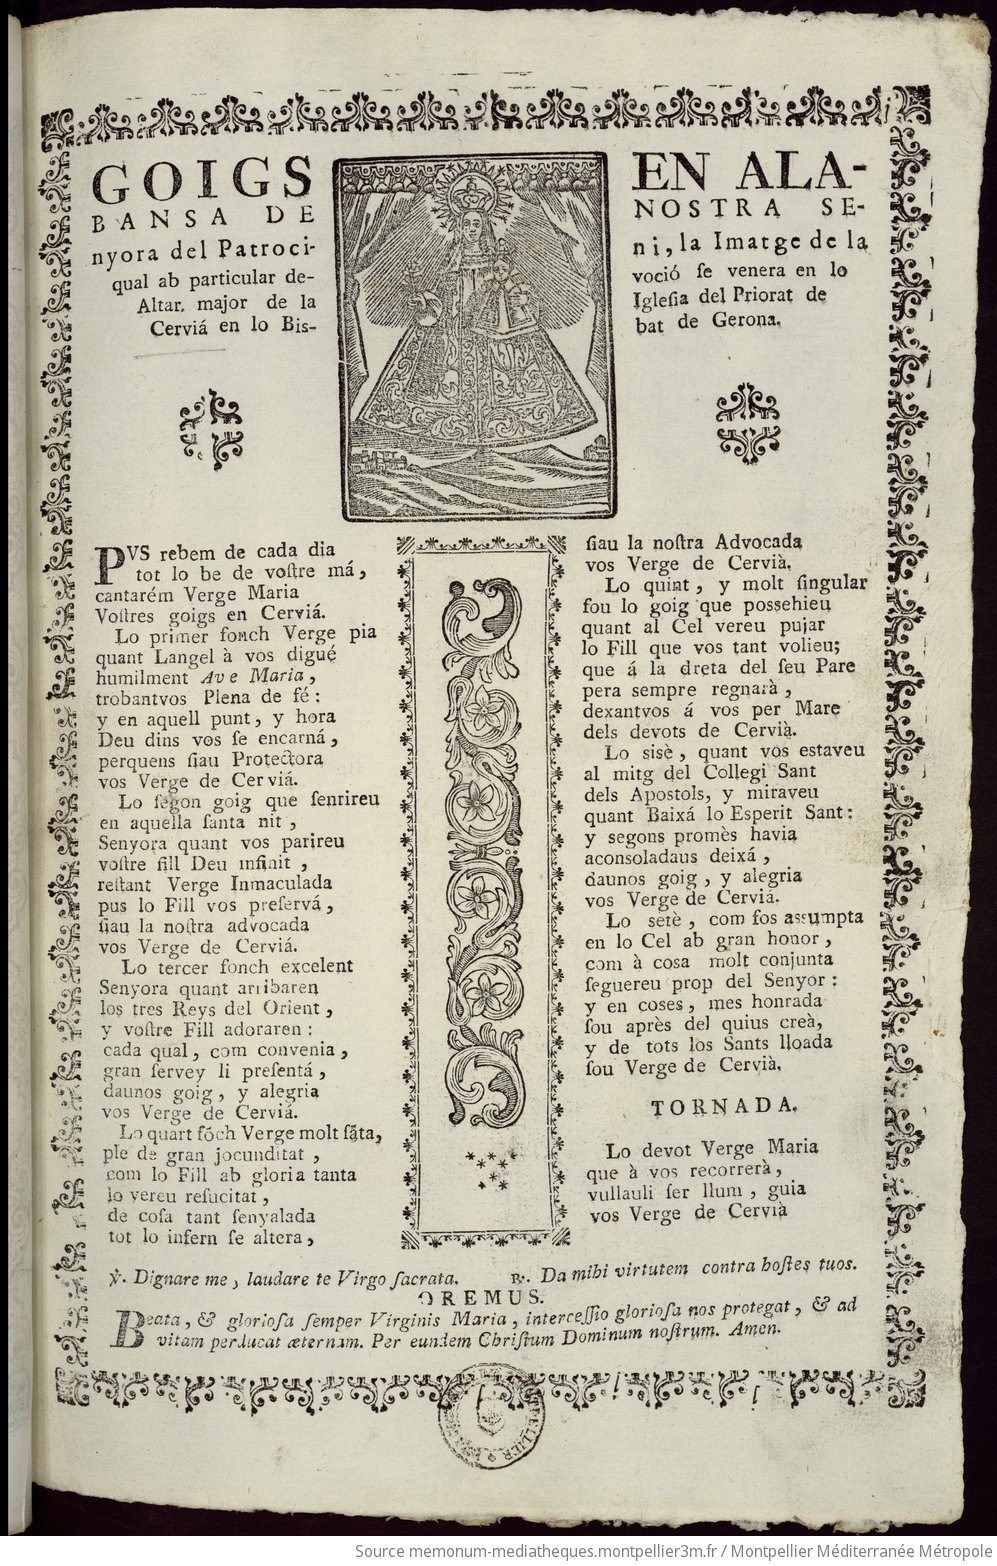 GOIGS EN ALA-
BANSA DE NOSTRA SE-
nyora del Patroci- ni, la Imatge de la
qual ab particular de- voció ſe venera en lo
Altar major de la Igleſia del Priorat de
Cerviá en lo Bis- bat de Gerona.
PVS rebem de cada dia
tot lo be de voſtre má,
cantarém Verge Maria
Voſtres goigs en Cerviá.
Lo primer fonch Verge pia
quant Langel à vos digué
humilment Ave Maria,
trobantvos Plena de fé:
y en aquell punt, y hora
Deu dins vos ſe encarná,
perquens ſiau Protectora
vos Verge de Cerviá.
Lo ſegon goig que ſentireu
en aquella ſanta nit,
Senyora quant vos parireu
voſtre fill Deu infinit,
reſtant Verge Inmaculada
pus lo Fill vos preſervá,
ſiau la noſtra advocada
vos Verge de Cerviá.
Lo tercer fonch excelent
Senyora quant arribaren
los tres Reys del Orient,
y voſtre Fill adoraren:
cada qual, com convenia,
gran ſervey li preſentá,
daunos goig, y alegria
vos Verge de Cerviá.
Lo quart fōch Verge molt ſāta,
ple de gran jocunditat,
com lo Fill ab gloria tanta
lo vereu reſucitat,
de coſa tant ſenyalada
tot lo infern ſe altera,
ſiau la noſtra Advocada
vos Verge de Cervià.
Lo quint, y molt ſingular
fou lo goig que possehieu
quant al Cel vereu pujar
lo Fill que vos tant volieu;
que á la dreta del ſeu Pare
pera sempre regnarà,
dexantvos á vos per Mare
dels devots de Cervià.
Lo sisè, quant vos estaveu
al mitg del Collegi Sant
dels Apostols, y miraveu
quant Baixá lo Esperit Sant:
y segons promès havia
aconsoladaus deixá,
daunos goig, y alegria
vos Verge de Cerviá.
Lo setè, com fos assumpta
en lo Cel ab gran honor,
com à cosa molt conjunta
ſeguereu prop del Senyor:
y en coses, mes honrada
ſou après del quius creà,
y de tots los Sants lloada
ſou Verge de Cervià.
TORNADA.
Lo devot Verge Maria
que à vos recorrerà,
vullauli ſer llum, guia
vos Verge de Cervià
℣. Dignare me, laudare te Virgo ſacrata. ℟. Da mihi virtutem contra hoſtes tuos.
OREMUS.
Beata, & glorioſa ſemper Virginis Maria, interceſſio glorioſa nos protegat, & ad
vitam perducat æternam. Per eundem Chriſtum Dominum noſtrum. Amen.
Source memonum-mediatheques.montpellier3m.fr / Montpellier Méditerranée Métropole